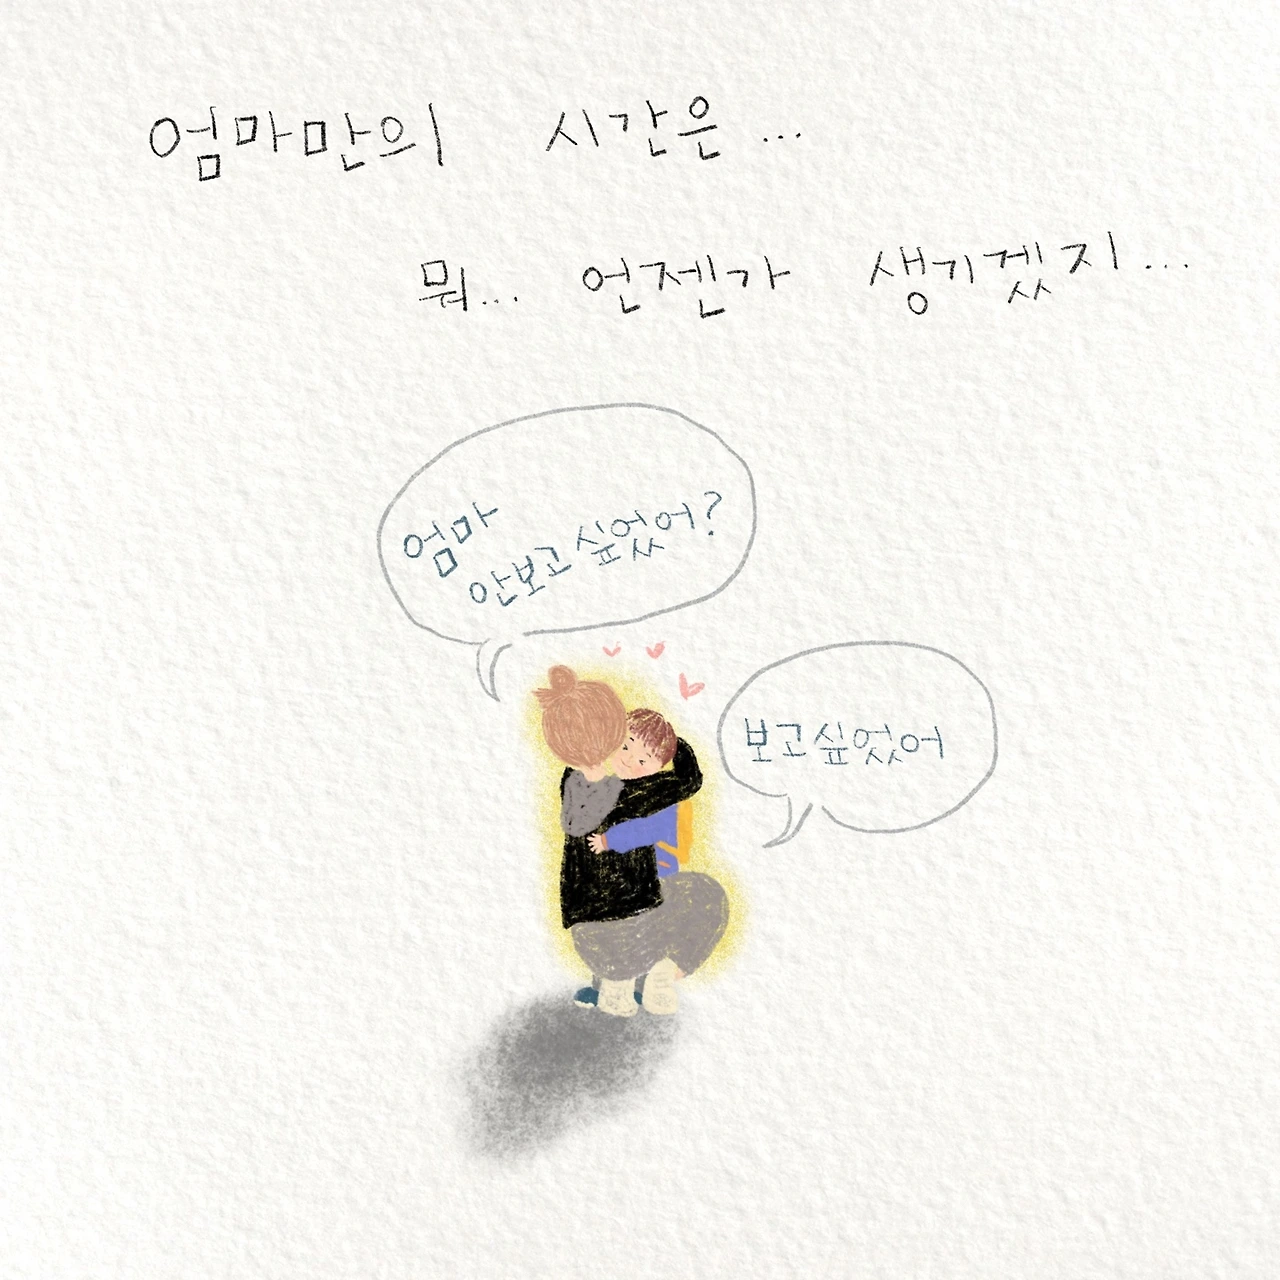 엄마만의 시간은 ...
뭐... 언젠가 생기겠지...
엄마
안보고싶었어?
보고싶었어